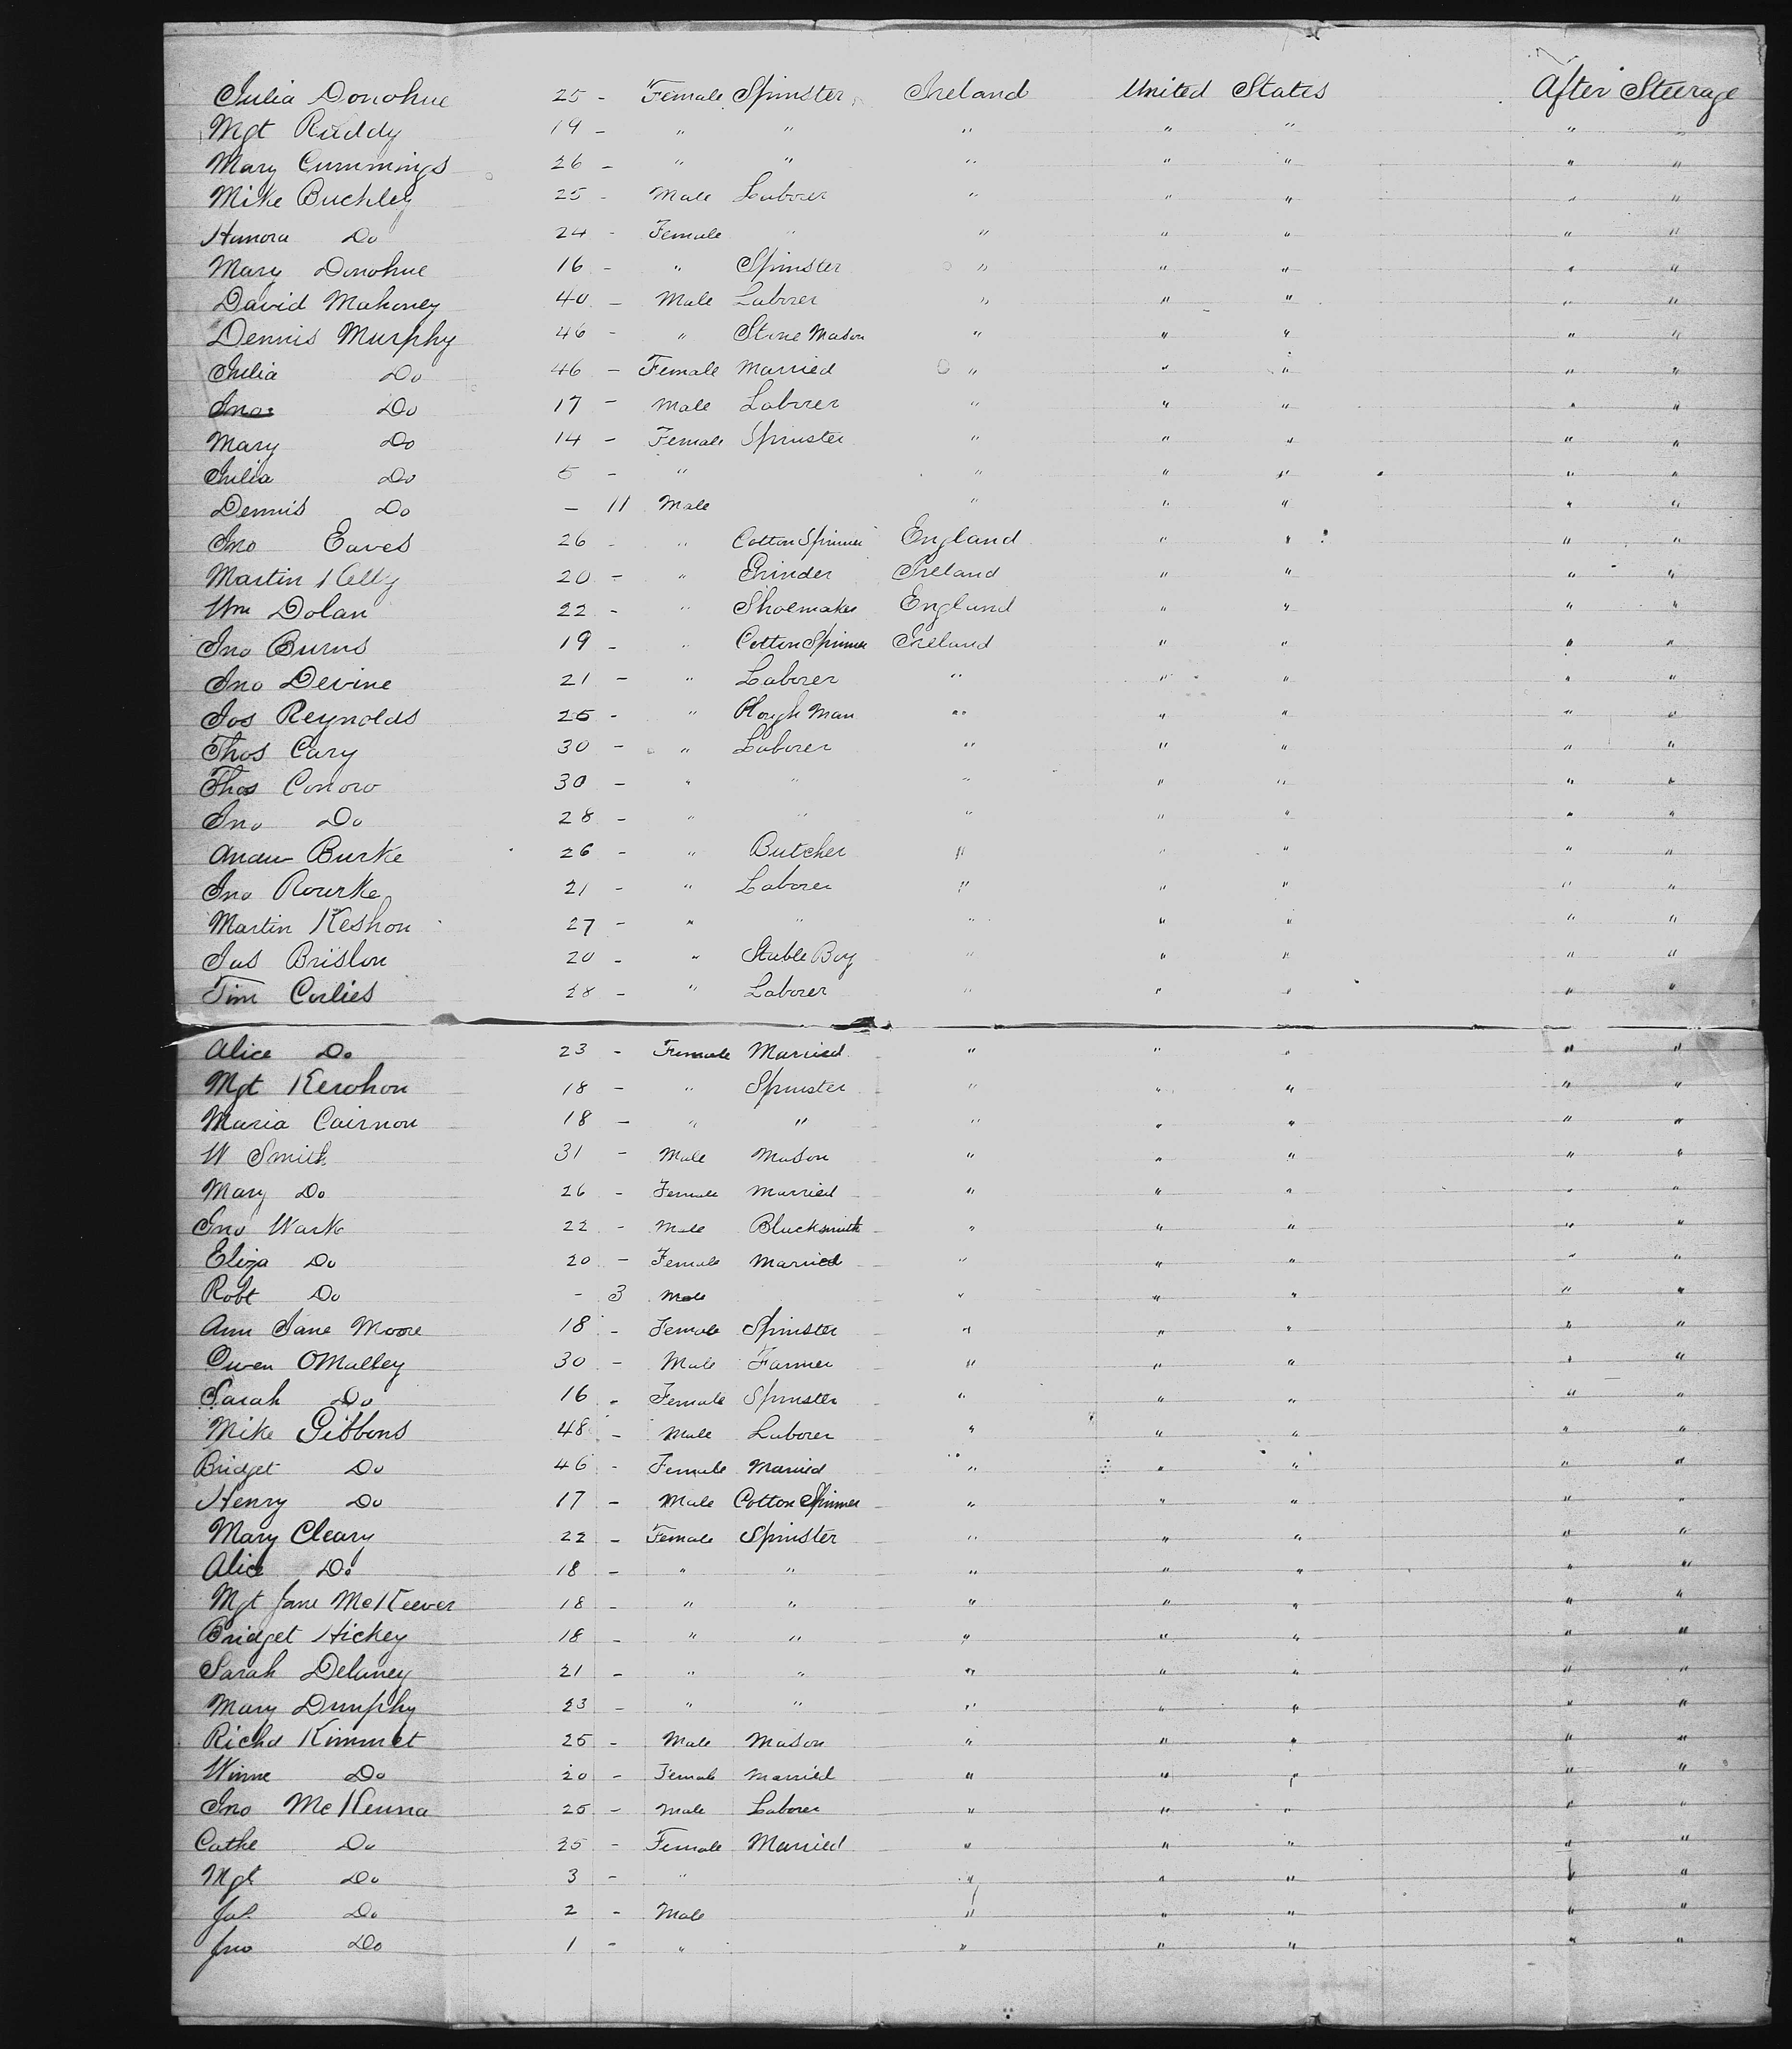 Julia Donohue 25 - Female Spinster Ireland United States After Steerage
Mgt Ruddy 19 - " " " " " " "
Mary Cummings 26 - " " " " " " "
Mike Buckley 25 - Male Laborer " " " " "
Hanora Do 24 - Female " " " " " "
Mary Donohue 16 - " Spinster " " " " "
David Mahoney 40 - Male Laborer " " " " "
Dennis Murphy 46 - " Stone Mason " " " " "
Julia Do 46 - Female Married " " " " "
Jno Do 17 - Male Laborer " " " " "
Mary Do 14 - Female Spinster " " " " "
Julia Do 5 - " " " " " "
Dennis Do - 11 Male " " " " "
Jno Eaves 26 - " Cotton Spinner England " " " "
Martin Kelly 20 - " Grinder Ireland " " " "
Wm Dolan 22 - " Shoemaker England " " " "
Jno Burns 19 - " Cotton Spinner Ireland " " " "
Jno Devine 21 - " Laborer " " " " "
Jos Reynolds 25 - " Plough Man " " " " "
Thos Cary 30 - " Laborer " " " " "
Thos Conoro 30 - " " " " " " "
Jno Do 28 - " " " " " " "
Andw Burke 26 - " Butcher " " " " "
Jno Rourke 21 - " Laborer " " " " "
Martin Keshon 27 - " " " " " " "
Jas Brislon 20 - " Stable Boy " " " " "
Tim Corlies 28 - " Laborer " " " " "
Alice Do 23 - Female Married " " " " "
Mgt Kerohon 18 - " Spinster " " " " "
Maria Cairnon 18 - " " " " " " "
W Smith 31 - Male Mason " " " " "
Mary Do 26 - Female Married " " " " "
Jno Wark 22 - Male Blacksmith " " " " "
Eliza Do 20 - Female Married " " " " "
Robt Do - 3 Male " " " " "
Ann Jane Moore 18 - Female Spinster " " " " "
Owen OMalley 30 - Male Farmer " " " " "
Sarah Do 16 - Female Spinster " " " " "
Mike Gibbons 48 - Male Laborer " " " " "
Bridget Do 46 - Female Married " " " " "
Henry Do 17 - Male Cotton Spinner " " " " "
Mary Cleary 22 - Female Spinster " " " " "
Alice Do 18 - " " " " " " "
Mgt Jane McKeever 18 - " " " " " " "
Bridget Hickey 18 - " " " " " " "
Sarah Delaney 21 - " " " " " " "
Mary Dunphy 23 - " " " " " " "
Richd Kimmet 25 - Male Mason " " " " "
Winne Do 20 - Female Married " " " " "
Jno McKenna 25 - Male Laborer " " " " "
Cathe Do 25 - Female Married " " " " "
Mgt Do 3 - " " " " " "
Jas Do 2 - Male " " " " "
Jno Do 1 - " " " " " "